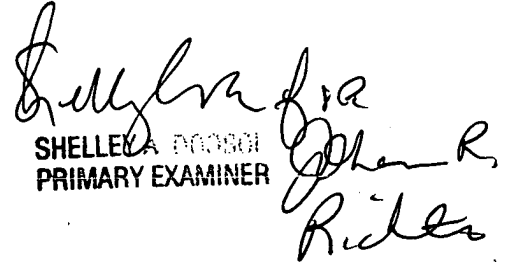 for
SHELLEY A. DODSON
PRIMARY EXAMINER
Johann R.
Richter